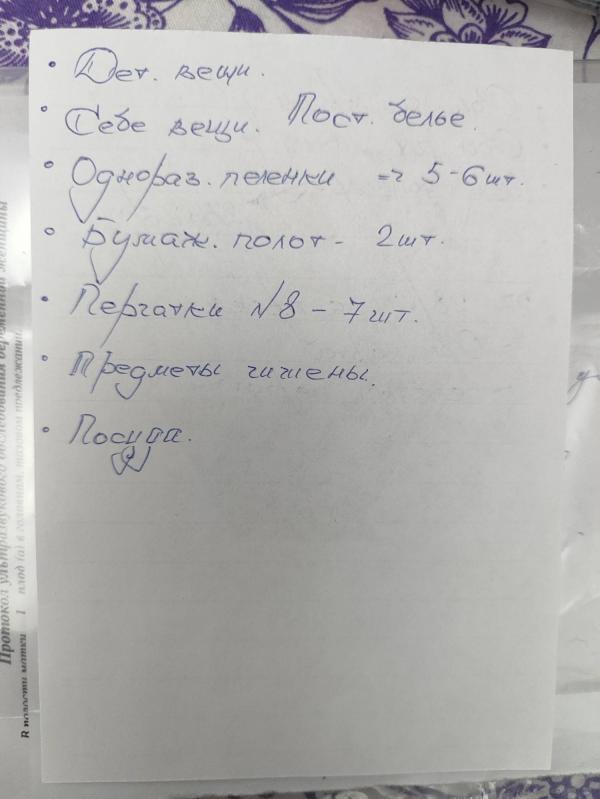 • Дет. вещи.
• Себе вещи. Пост. белье.
• Однораз. пеленки = 5-6 шт.
• Бумаж. полот - 2 шт.
• Перчатки №8 - 7 шт.
• Предметы гигиены.
• Посуда.
Протокол ультразвукового обследования беременной женщины
В полости матки 1 плод (а) в головном, тазовом предлежании